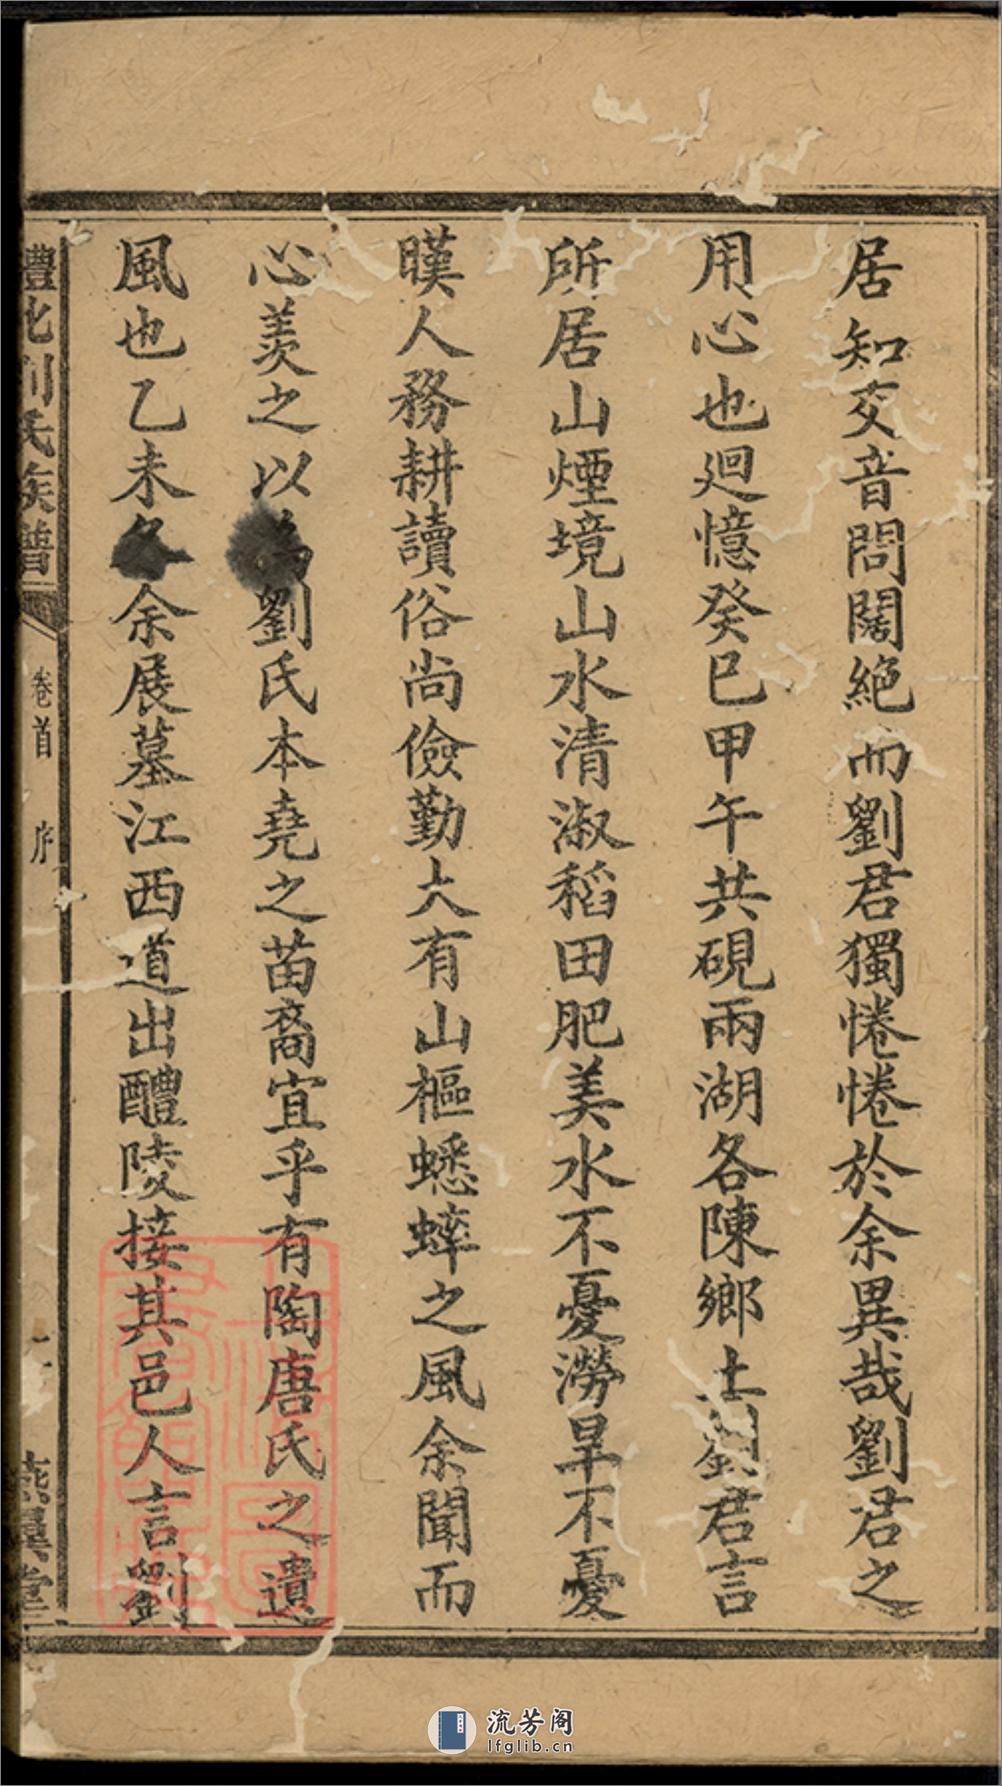 居知交音問闊絕而劉君獨惓惓於余異哉劉君之
用心也廻憶癸巳甲午共硯兩湖各陳鄉土劉君言
所居山煙境山水清淑稻田肥美水不憂澇旱不憂
暵人務耕讀俗尚儉勤大有山樞蟋蟀之風余聞而
心羨之以為劉氏本堯之苗裔宜乎有陶唐氏之遺
風也乙未冬余展墓江西道出醴陵接其邑人言劉
醴北劉氏族譜
卷首
序
燕翼堂
流芳阁
lfglib.cn